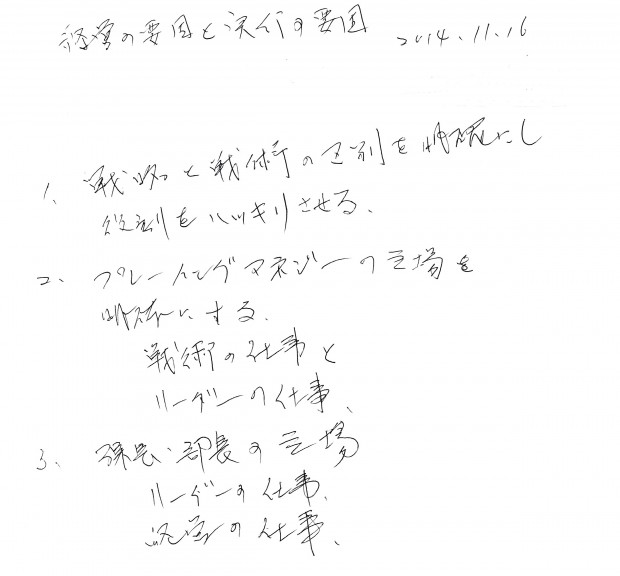 経営の要因と実行の要因 2014.11.16
1、戦略と戦術の区別を明確にし
役割をハッキリさせる、
2、プレーイングマネジーの立場を
明確にする、
戦術の仕事と
リーダーの仕事、
3、課長・部長の立場
リーダーの仕事、
経営の仕事、